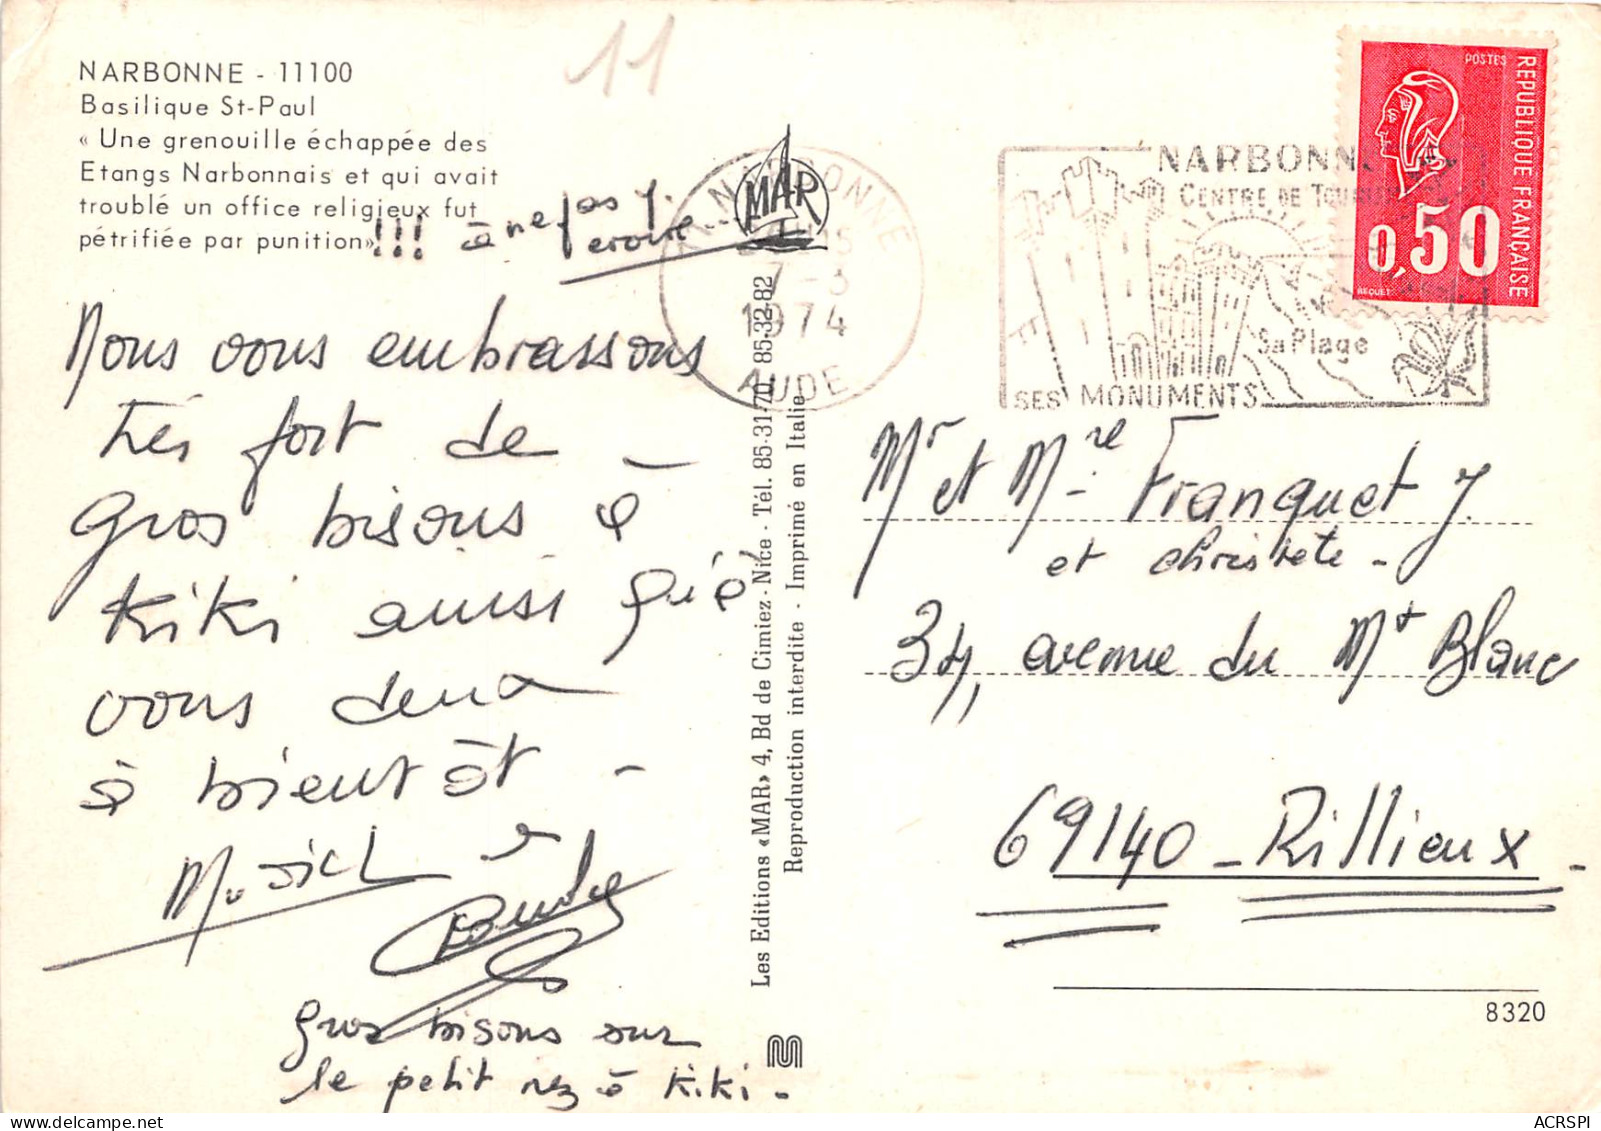 11
NARBONNE - 11100
Basilique St-Paul
« Une grenouille échappée des
Etangs Narbonnais et qui avait
troublé un office religieux fut
pétrifiée par punition»
!!! à ne pas y
croire
MAR
NARBONNE
7-3
1974
AUDE
NARBONN
CENTRE DE TOU
Sa Plage
SES MONUMENTS
POSTES
REPUBLIQUE FRANÇAISE
0,50
BEQUET
Nous vous embrassons
très fort de
gros bisous à
Kiki aussi
vous deux
à bientôt -
Gros bisous sur
le petit nez à Kiki -
Les Editions «MAR» 4, Bd de Cimiez - Nice - Tél. 85-31-70 85-32-82
Reproduction interdite - Imprimé en Italie
Mr et Mme Franquet J.
et christete -
34, avenue du Mt Blanc
69140 - Rillieux -
8320
ACRSPI